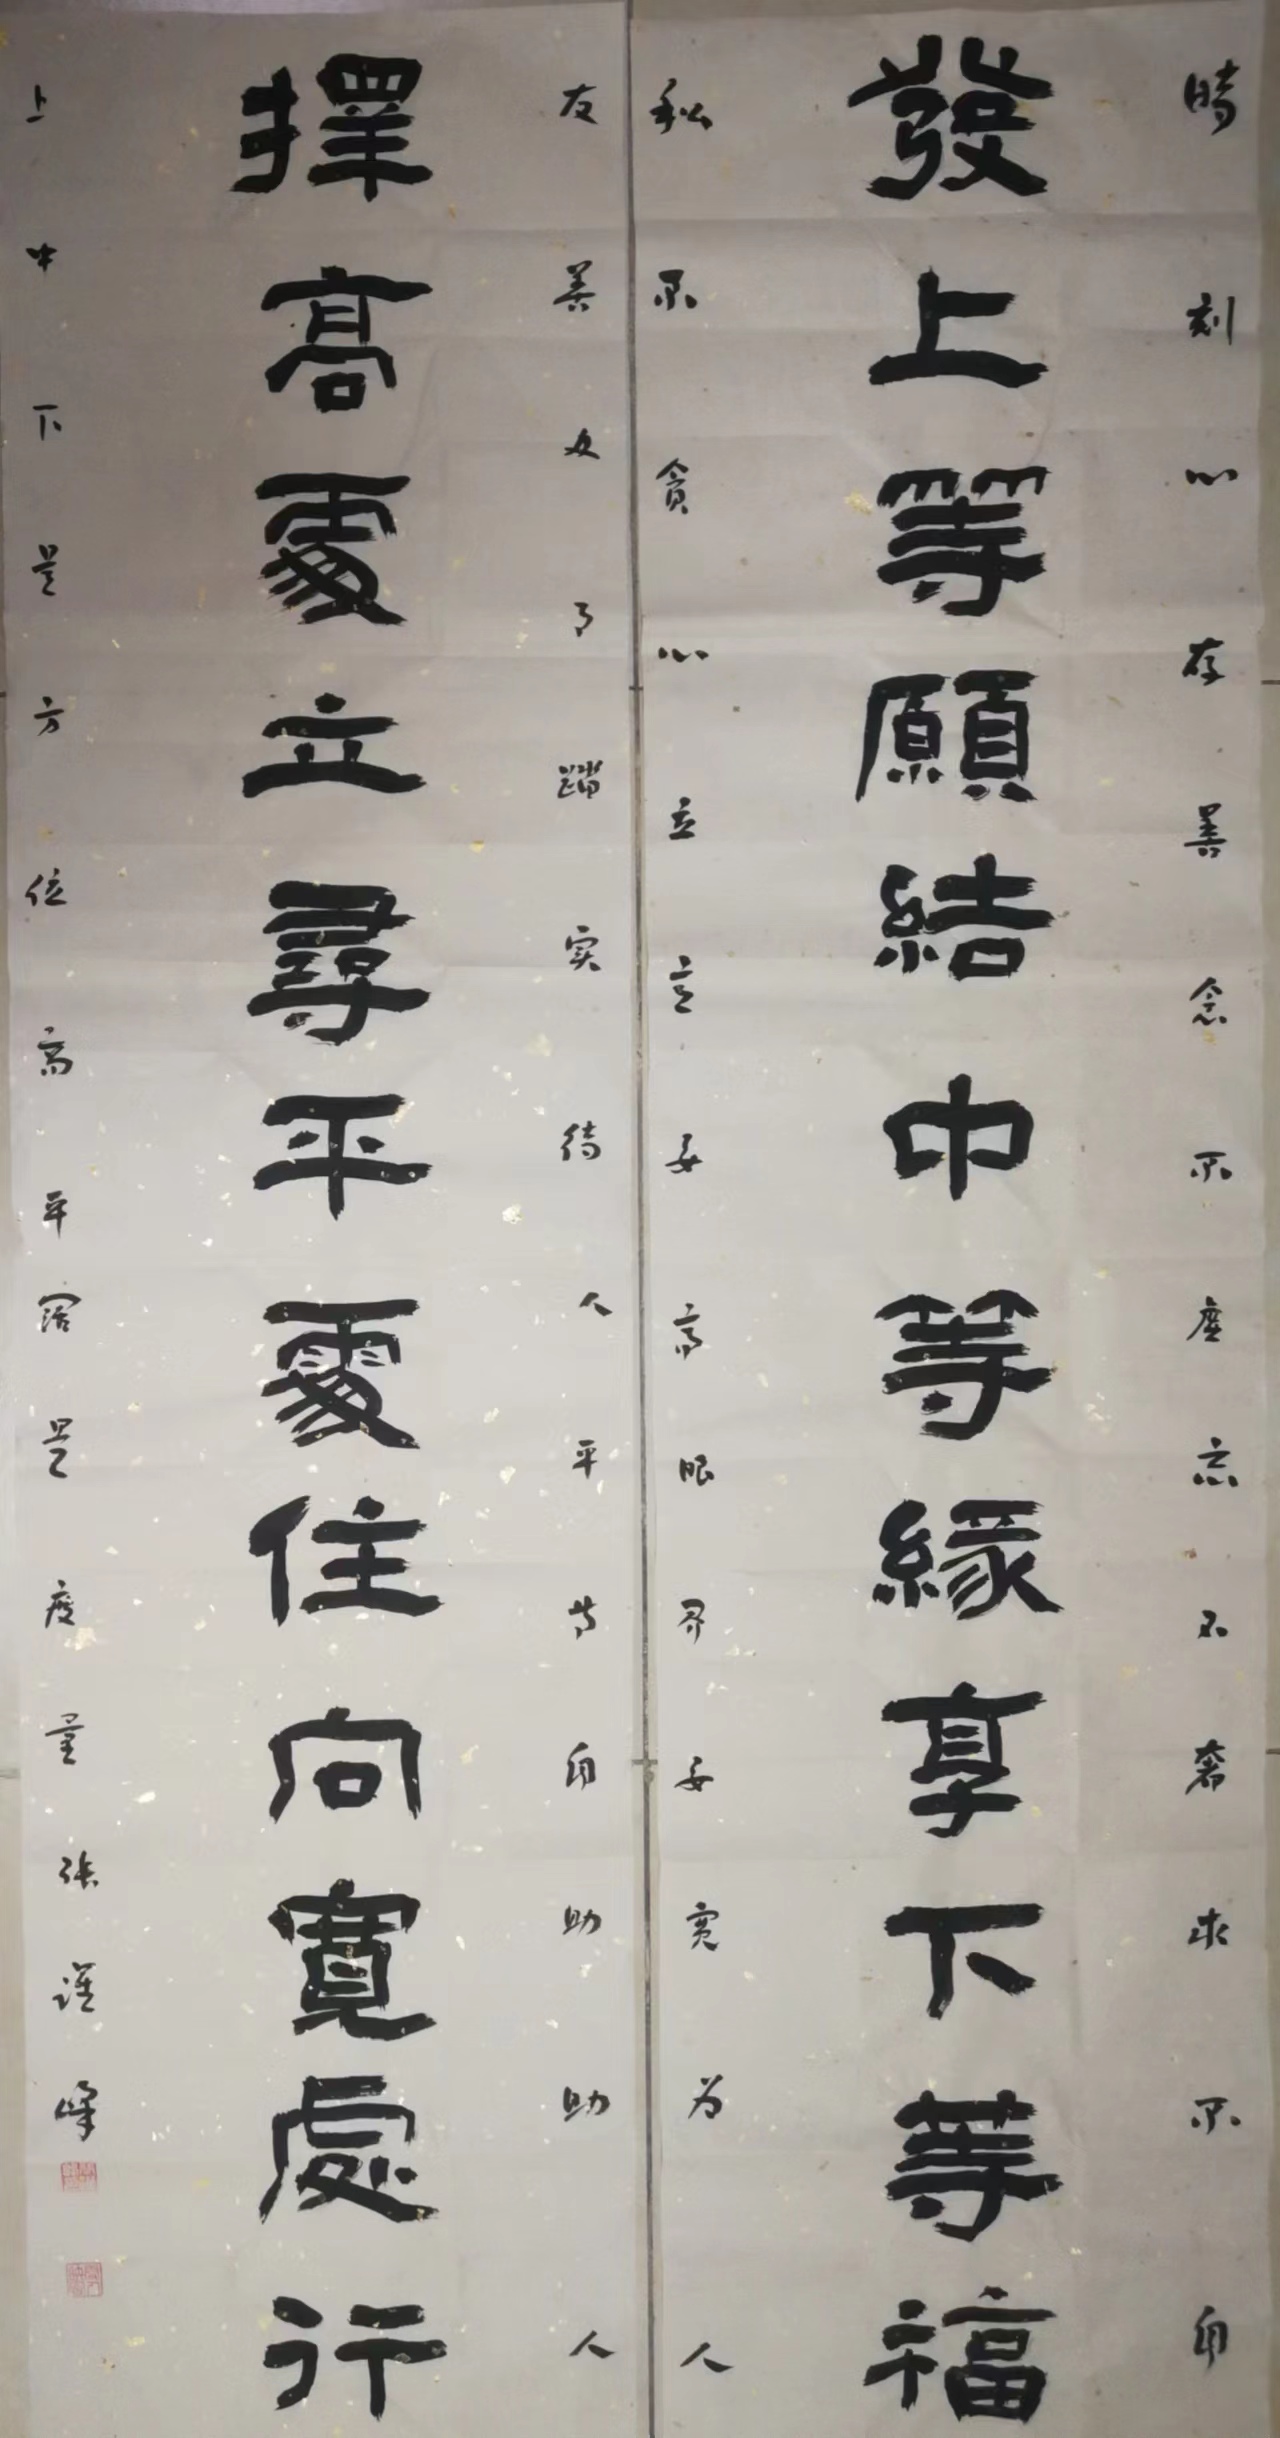 時刻心存善念不虛忘不奢求不自
發上等願結中等緣享下等福
私不貪心立意要高眼界要寬为人
友善 踏实待人平 自助助人
擇高處立尋平處住向寬處行
上中下是方位高平 是度量張 峰